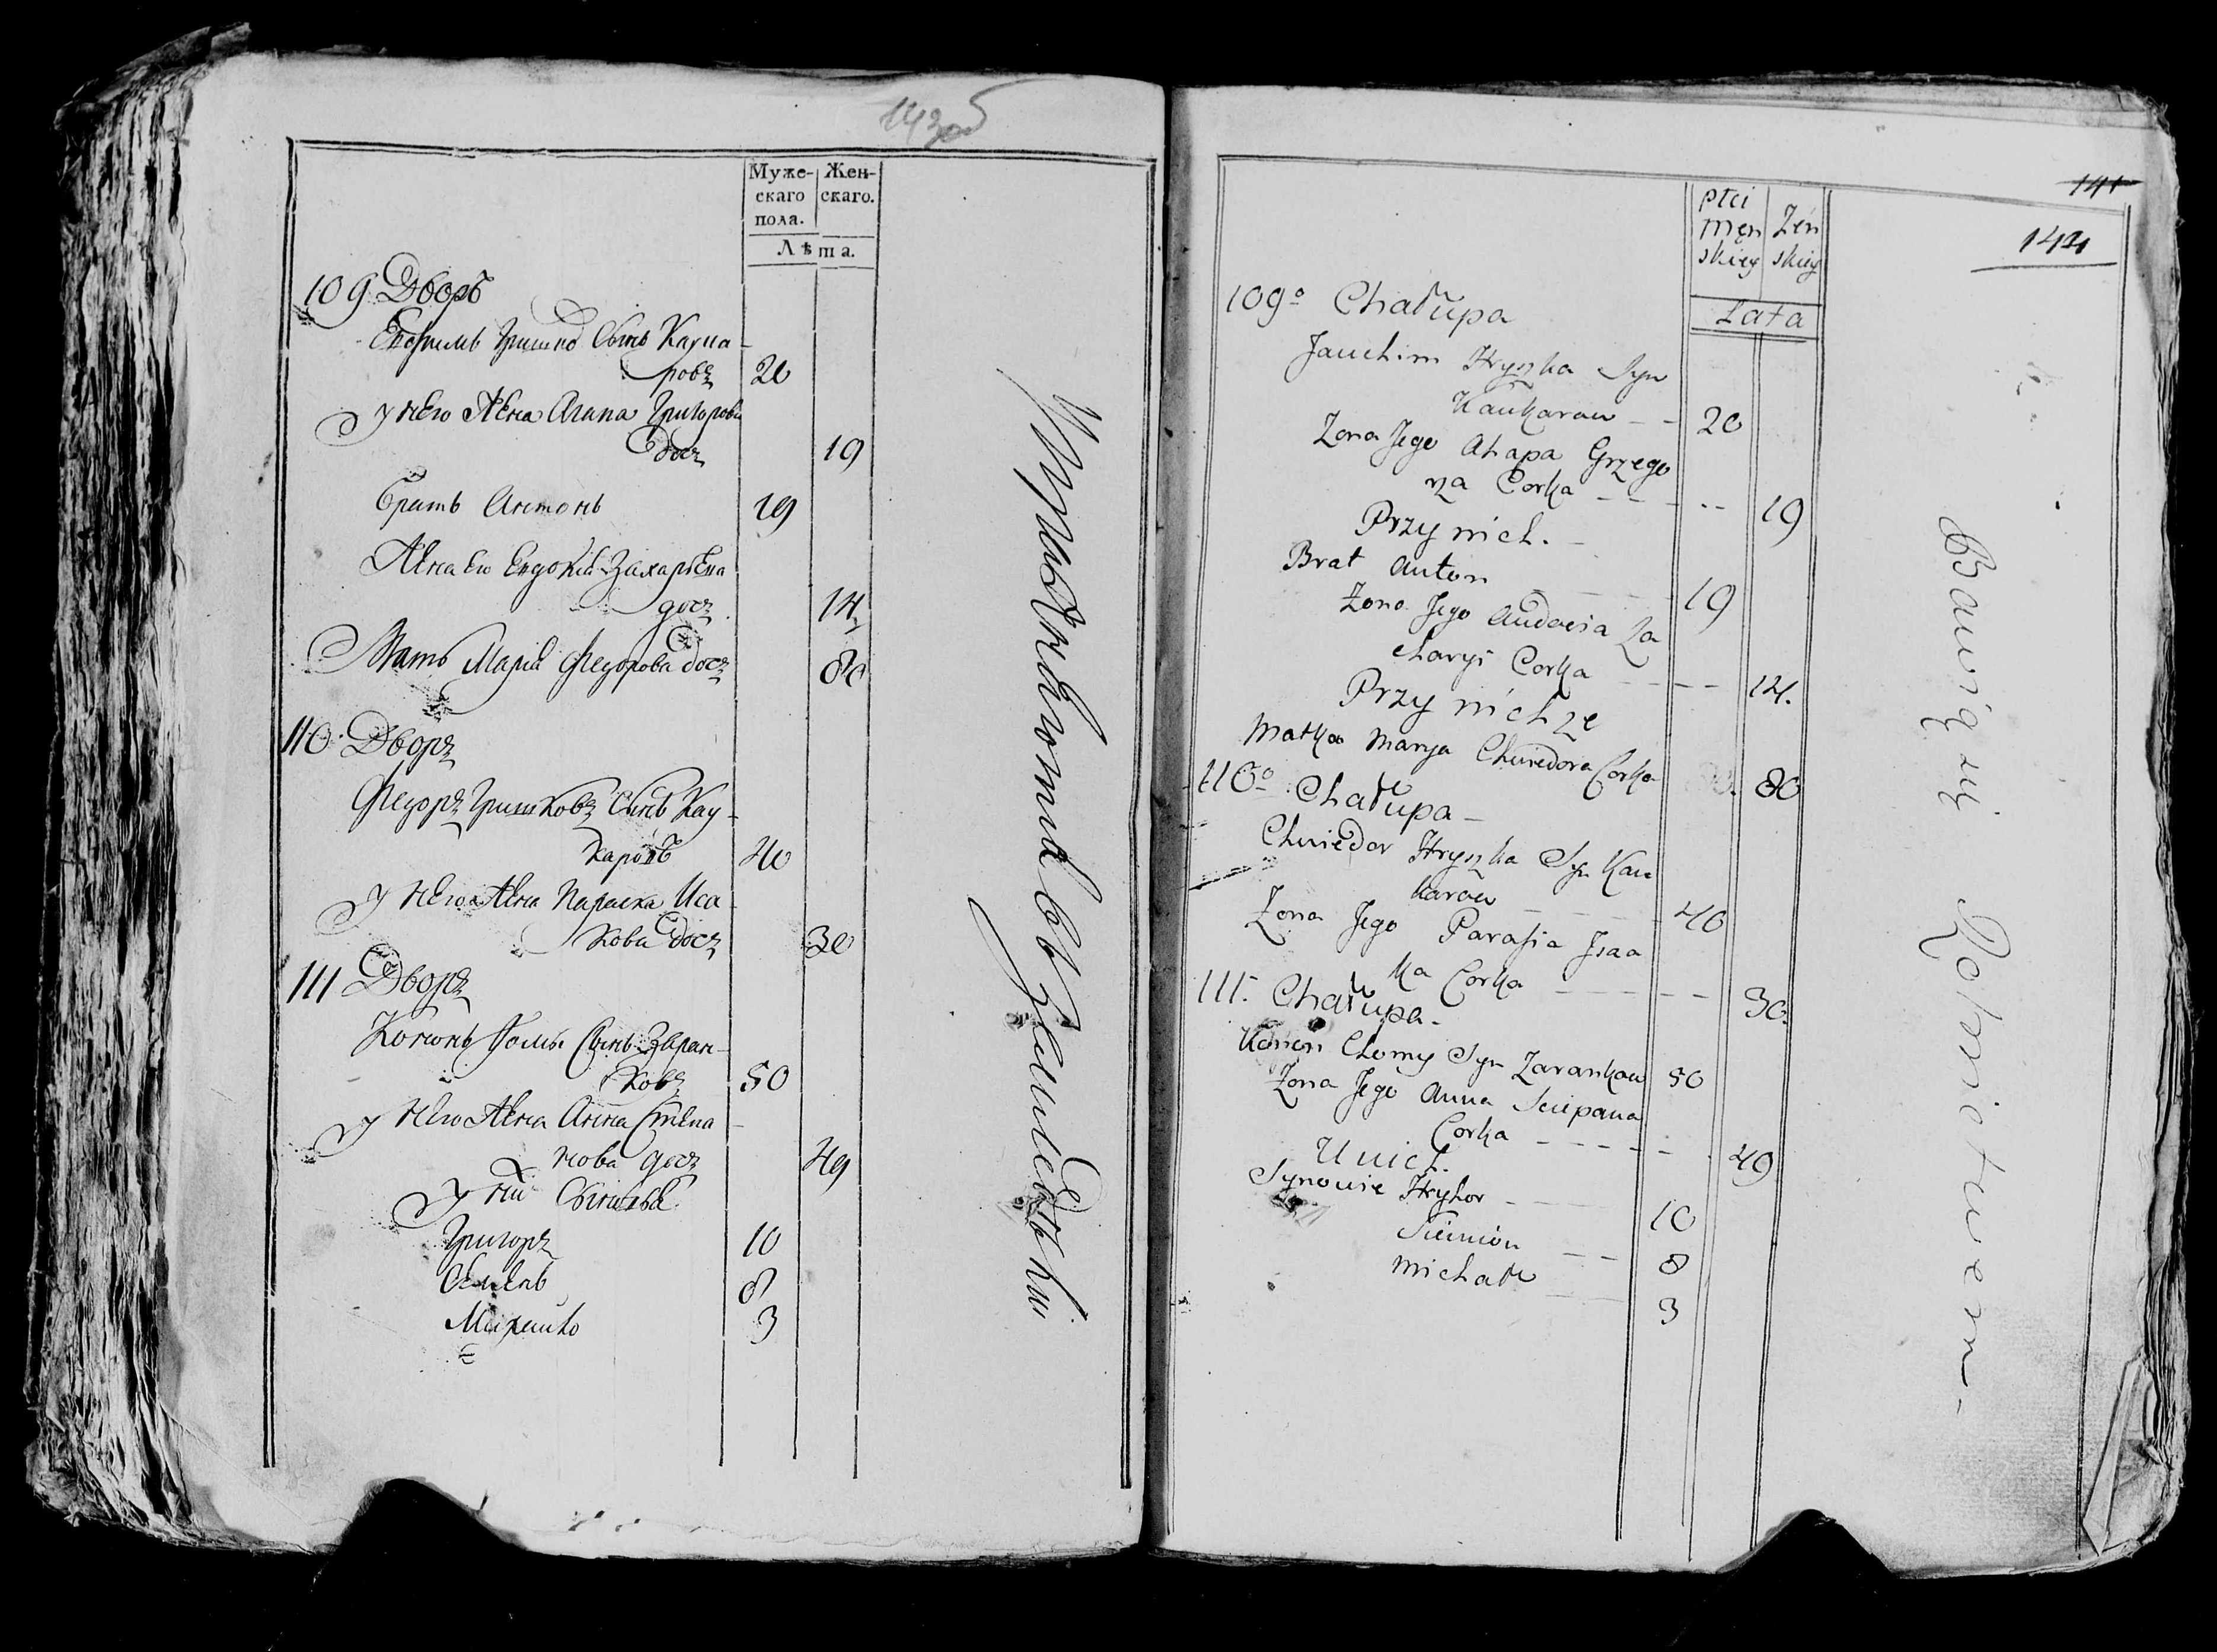 143об
Муже- Жен-
скаго скаго.
пола.
Лѣта.
109 Дворъ
Евфимъ Гришко Сынъ Каука-
ровъ 20
У него Жена Агапа Григорова
дочь 19
Братъ Антонъ 19
Жена его Евдокия Захарьева
дочь 14
Мать Мария Федорова дочь 80
110 Дворъ
Федоръ Гришковъ Сынъ Кау-
каровъ 40
У него Жена Параска Иса-
кова дочь 30
111 Дворъ
Кононъ Фомы Сынъ Заран-
ковъ 50
У него Жена Анна Степа-
нова дочь 49
У них Сыновья
Григоръ 10
Семенъ 8
Михайло 3
141
144
płci
męz Żeń
skiey skiey
Lata
109o Chałupa
Jauchim Hryszka Syn
Kaukarow 20
Zona Jego Ahapa Grzego
rza Corka 19
Przy nich.
Brat Anton 19
Zona Jego Audocia Za
charyi Corka 14.
Przy nich ze
Matka Marya Chwiedora Corka 80
110o Chałupa
Chwiedor Hryszka Syn Kau
karow 40
Zona Jego Parasia Jsaa
ka Corka 30.
111. Chałupa.
Konon Chomy Syn Zarankow 50
Zona Jego Anna Sciepana
Corka 49
U nich.
Synowie Hryhor 10
Siemion 8
Michał 3